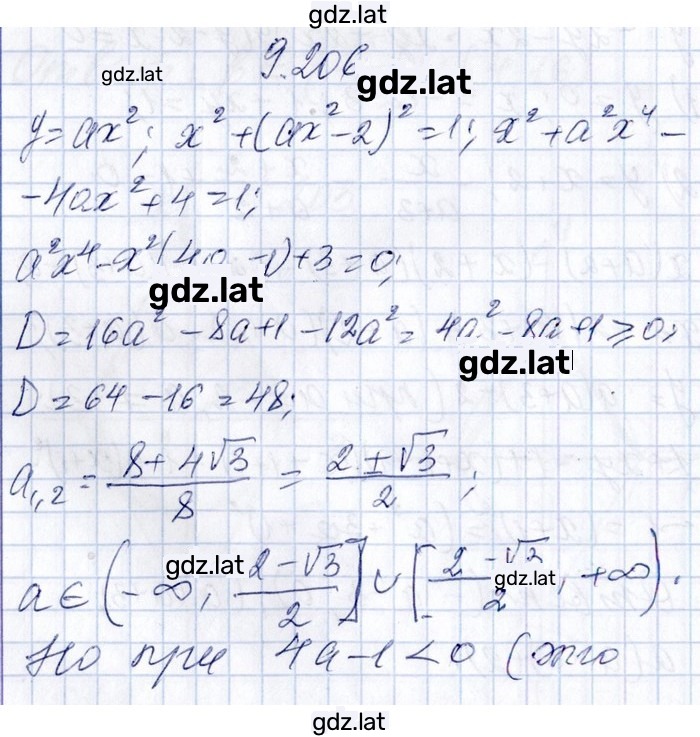 gdz.lat
9.206
gdz.lat
gdz.lat
y = ax²; x² + (ax² - 2)² = 1; x² + a²x⁴ -
- 4ax² + 4 = 1;
a²x⁴ - x²(4a - 1) + 3 = 0;
gdz.lat
D = 16a² - 8a + 1 - 12a² = 4a² - 8a + 1 ≥ 0;
gdz.lat
D = 64 - 16 = 48;
a₁,₂ = (8 + 4√3)/8 = (2 ± √3)/2;
gdz.lat
gdz.lat
a ∈ (-∞; (2 - √3)/2] ∪ [(2 - √3)/2; +∞).
Но при 4a - 1 < 0 (это
gdz.lat